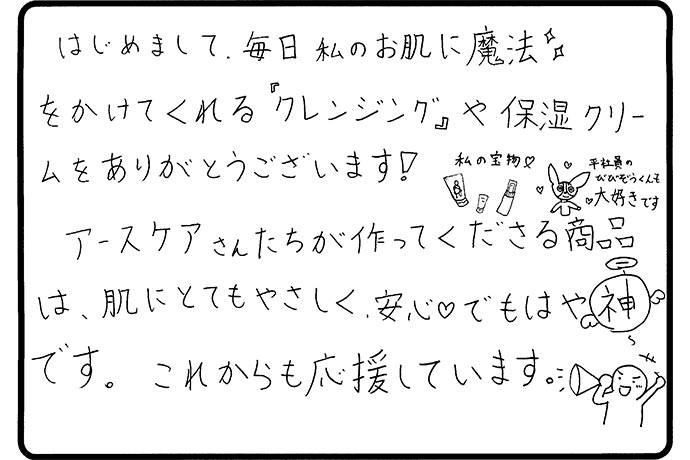 はじめまして、毎日 私のお肌に魔法
をかけてくれる『クレンジング』や 保湿クリー
ムをありがとうございます!
私の宝物♡
平社員の
びびぞうくんも
大好きです
アースケアさんたちが作ってくださる商品
は、肌にとてもやさしく、安心♡でもはや神
です。これからも応援しています。